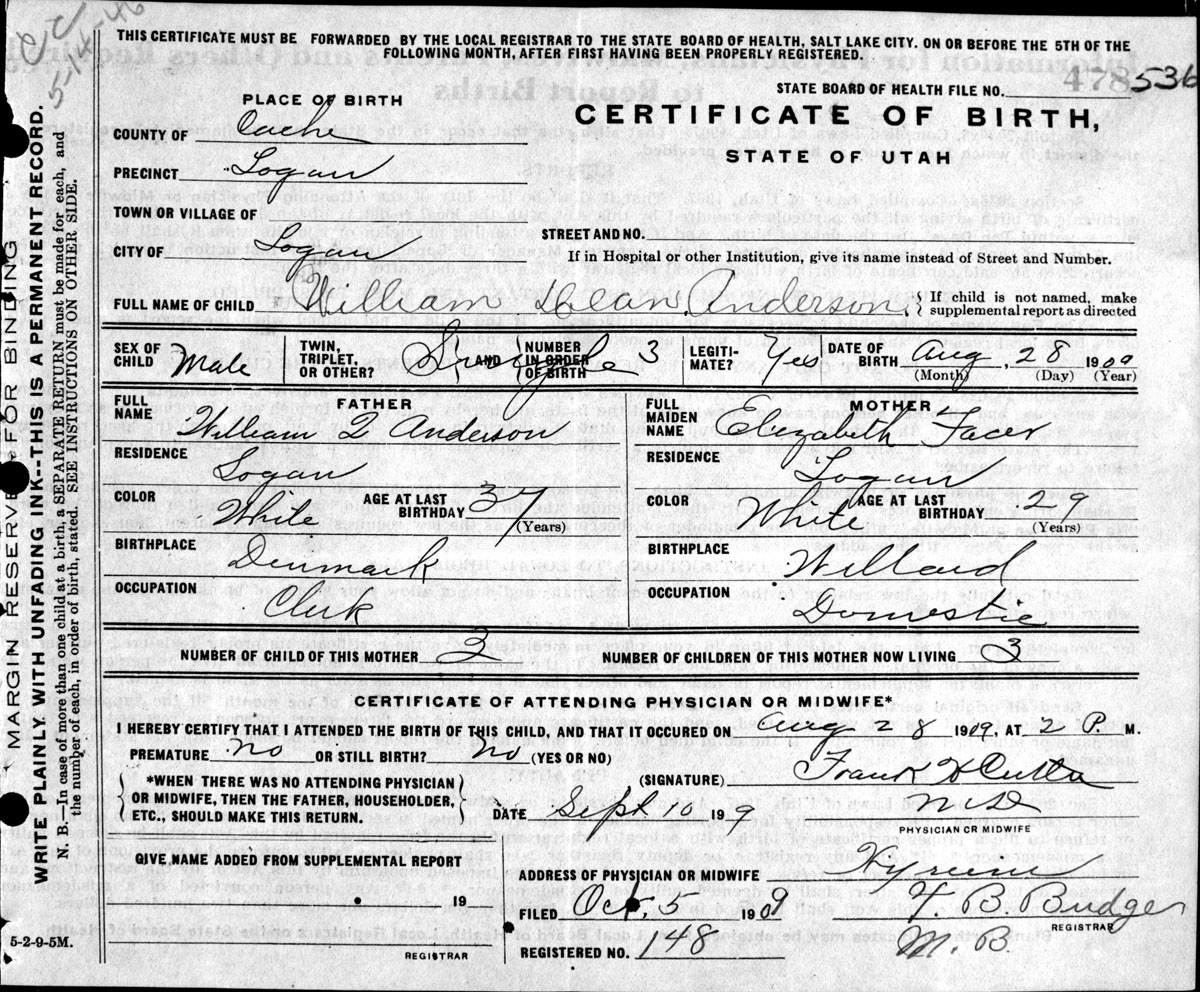 THIS CERTIFICATE MUST BE FORWARDED BY THE LOCAL REGISTRAR TO THE STATE BOARD OF HEALTH, SALT LAKE CITY. ON OR BEFORE THE 5TH OF THE
FOLLOWING MONTH, AFTER FIRST HAVING BEEN PROPERLY REGISTERED.
5-14-46
STATE BOARD OF HEALTH FILE NO. 478 536
PLACE OF BIRTH
CERTIFICATE OF BIRTH,
STATE OF UTAH
COUNTY OF Cache
PRECINCT Logan
TOWN OR VILLAGE OF
STREET AND NO.
CITY OF Logan
If in Hospital or other Institution, give its name instead of Street and Number.
FULL NAME OF CHILD William Dean Anderson. { If child is not named, make
supplemental report as directed
SEX OF CHILD Male
TWIN, TRIPLET, OR OTHER? Single AND NUMBER IN ORDER OF BIRTH 3
LEGITI-MATE? Yes
DATE OF BIRTH Aug, 28 1909
(Month) (Day) (Year)
FATHER
FULL NAME William Q Anderson
RESIDENCE Logan
COLOR White AGE AT LAST BIRTHDAY 37
(Years)
BIRTHPLACE Denmark
OCCUPATION Clerk
MOTHER
FULL MAIDEN NAME Elizabeth Facer
RESIDENCE Logan
COLOR White AGE AT LAST BIRTHDAY 29
(Years)
BIRTHPLACE Willard
OCCUPATION Domestic
NUMBER OF CHILD OF THIS MOTHER 3 NUMBER OF CHILDREN OF THIS MOTHER NOW LIVING 3
CERTIFICATE OF ATTENDING PHYSICIAN OR MIDWIFE*
I HEREBY CERTIFY THAT I ATTENDED THE BIRTH OF THIS CHILD, AND THAT IT OCCURED ON Aug 28 1909, AT 2 P. M.
PREMATURE No OR STILL BIRTH? No (YES OR NO)
*WHEN THERE WAS NO ATTENDING PHYSICIAN
OR MIDWIFE, THEN THE FATHER, HOUSEHOLDER,
ETC., SHOULD MAKE THIS RETURN.
(SIGNATURE) Frank
MD
PHYSICIAN OR MIDWIFE
DATE Sept 10 199
GIVE NAME ADDED FROM SUPPLEMENTAL REPORT
19
REGISTRAR
ADDRESS OF PHYSICIAN OR MIDWIFE Hyrum
FILED Oct, 5 1909 T. B. Budge
REGISTRAR
REGISTERED NO. 148 M. B.
5-2-9-5M.
MARGIN RESERVED FOR BINDING
WRITE PLAINLY WITH UNFADING INK--THIS IS A PERMANENT RECORD.
N. B.—In case of more than one child at a birth, a SEPARATE RETURN must be made for each, and
the number of each, in order of birth, stated. SEE INSTRUCTIONS ON OTHER SIDE.